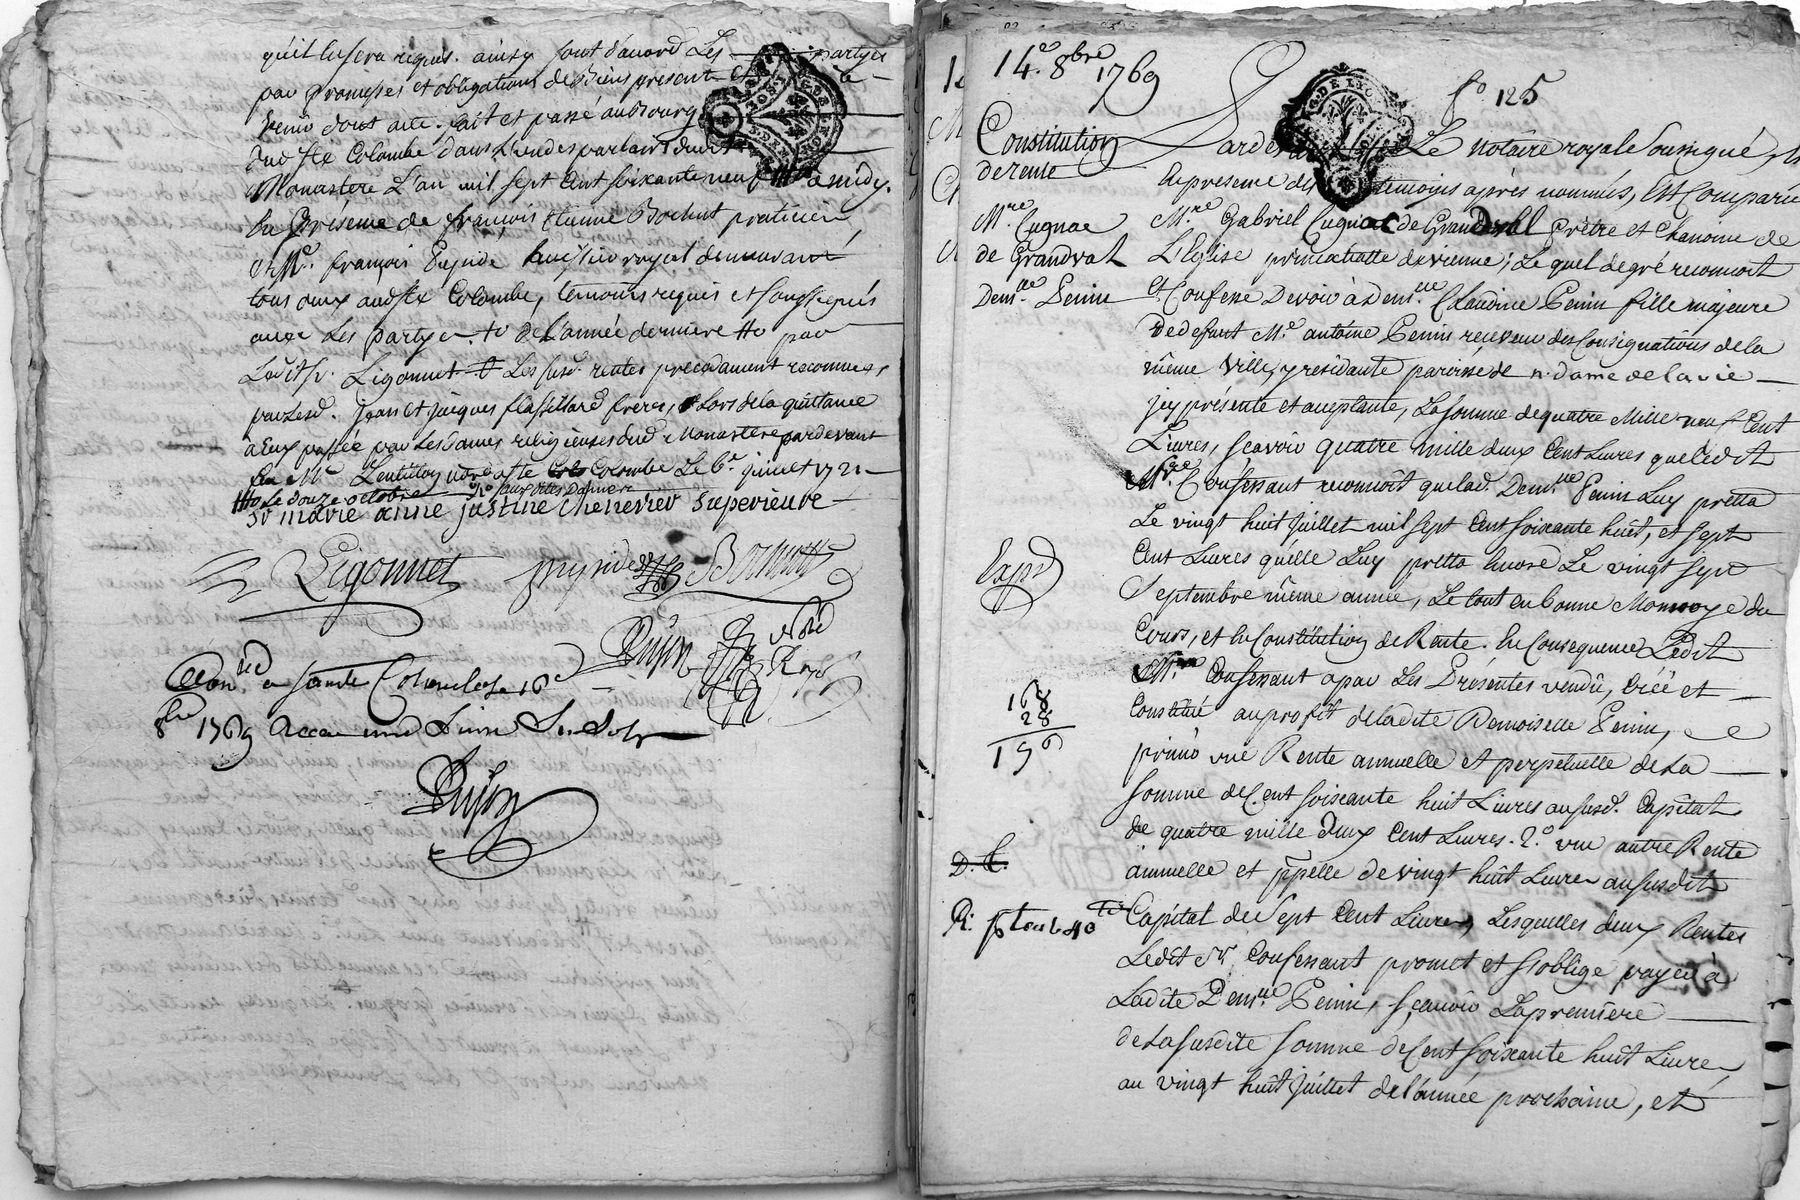 qu'il luy sera requis. ainsy sont d'accord Les partyes
par promesses et obligations de Biens present et a
venir dont acte. fait et passé au Bourg
dud. Ste Colombe dans L'un des parloirs dudit
Monastere L'an mil sept Cent soixante neuf Ho à midy.
En Présence de françois Etienne Bochut praticien
et Me. françois huissier royal demeurant
tous deux aud. Ste Colombe, temoins requis et soussignés
avec Les partyes. to de l'année derniere Ho par
Ledit Sr. Ligonnet Les susd. rentes precedament reconnues,
par Lesd. Jean et Jacques flassillard freres, Lors de la quittance
à Eux passée par Les dames religieuses dud. Monastere pardevant
Me Lentillon notre. a Ste Colombe Le 6e. juillet 1721
Ho Le douze octobre
Sr marie anne justine Chenevier superieure
Ligonnet Bochutt
Dujon
Con.lé a sainte Colombe le 16 d
8bre 1769 Recu
Dujon
14e. 8bre 1769
fo 125
Constitution
de rente
Mre. Cugnac
de Grandval
Demlle. Penin
Pardevant Le notaire royal soussigné,
En presence des temoins après nommés, Est Comparu
Mre. Gabriel Cugnac de Grandval Prêtre et Chanoine de
L'Eglise primatialle de vienne; Le quel de gré reconnoit
Et Confesse Devoir à Demlle. Claudine Penin fille majeure
De defunt Me. antoine Penin receveur des Consignations de la
même ville, y residante paroisse de n. dame de la vie
jcy présente et acceptante, La somme de quatre Mille neuf Cent
Livres, sçavoir quatre mille deux Cent Livres que Ledit
Mre. Confessant reconnoit que lad. Demlle. Penin Luy pretta
Le vingt huit juillet mil sept Cent soixante huit, et sept
Cent Livres qu'elle Luy pretta Encore Le vingt sept
Septembre même année, Le tout en bonne Monnoye du
Cours, et En Constitution de Rente. En Consequence Ledit
Mre. Confessant a par Les Présentes vendu, créé et
Constitué au profit de ladite Demoiselle Penin,
primo une Rente annuelle et perpetuelle de La
somme de Cent soixante huit Livres au susd. Capital
de quatre mille deux Cent Livres. 2o. une autre Rente
annuelle et ppelle de vingt huit Livres au susdit
Capital de Sept Cent Livres, Lesquelles deux Rentes
Ledit Sr. Confessant promet et s'oblige payer à
Ladite Demlle. Penin, sçavoir La premiere
de La susdite somme de Cent soixante huit Livres
au vingt huit juillet de l'année prochaine, et
Expd
168
28
196
D. C.